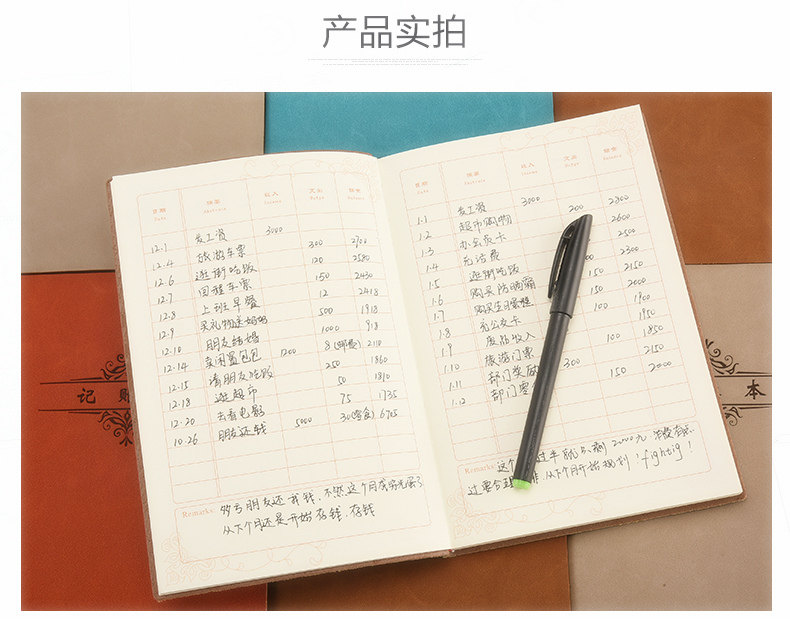 产品实拍
日期 摘要 收入 支出 结余
12.1 发工资 3000
12.4 旅游车票 300 2700
12.6 逛街吃饭 120 2580
12.7 回程车票 150 2430
12.8 上班早餐 12 2418
12.9 买礼物送妈妈 500 1918
12.10 朋友结婚 1000 918
12.14 卖闲置包包 1200 8(邮费) 2110
12.15 请朋友吃饭 250 1860
12.18 逛超市 50 1810
12.20 去看电影 75 1735
10.26 朋友还钱 5000 30(零食) 6705
Remarks 多亏朋友还我钱,不然这个月
从下个月还是开始存钱.存钱
日期 摘要 收入 支出 结余
1.1 发工资 3000
1.2 超市购物 200 2800
1.3 办公交卡 2600
1.4 充话费 2500
1.5 逛街吃饭 2300
1.6 购买防晒霜 150 2150
1.7 购买生日蛋糕 150 2000
1.8 充公交卡 100 1900
1.9 废品收入 1950
1.10 旅游门票 100 1850
1.11 部门奖励 300 2150
1.12 部门零 150 2000
Remarks 这个 过半 就只剩2000元 消费
过要合理 从下个月开始规划!fightig!
记
本